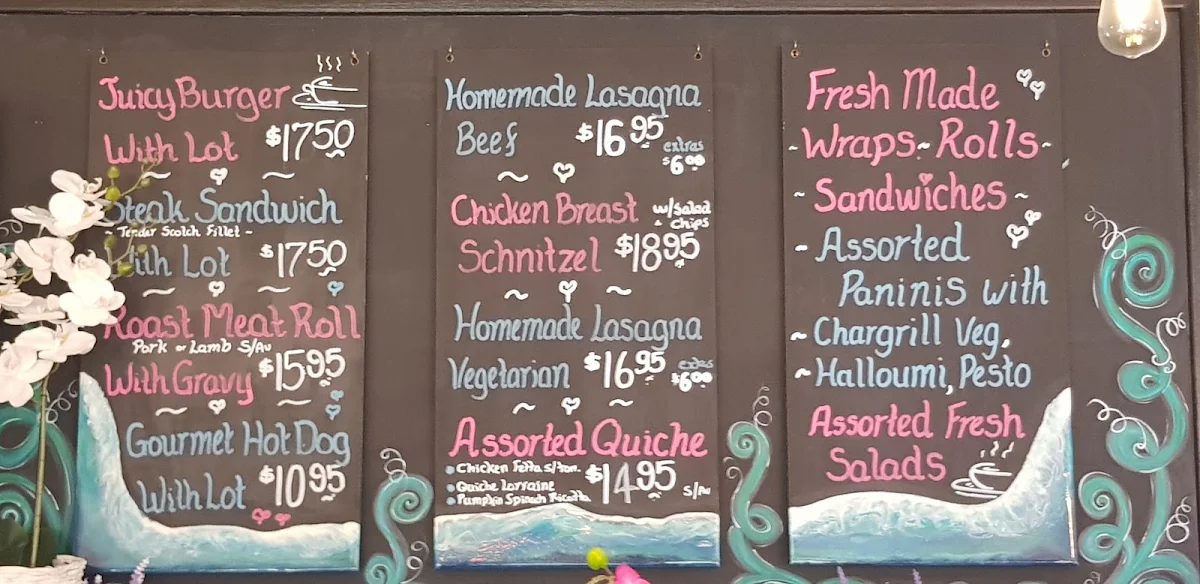 Juicy Burger
With Lot $17.50
Steak Sandwich
~ Tender Scotch Fillet ~
With Lot $17.50
Roast Meat Roll
Pork or Lamb S/Av
With Gravy $15.95
Gourmet Hot Dog
With Lot $10.95
Homemade Lasagna
Beef $16.95 extras
$6.00
Chicken Breast w/Salad
& chips
Schnitzel $18.95
Homemade Lasagna
Vegetarian $16.95 extras
$6.00
Assorted Quiche
• Chicken Fetta S/tom.
• Quiche Lorraine
• Pumpkin Spinach Ricotta
$14.95 S/Av
Fresh Made
~ Wraps ~ Rolls ~
~ Sandwiches ~
~ Assorted
Paninis with
~ Chargrill Veg,
~ Halloumi, Pesto
Assorted Fresh
Salads